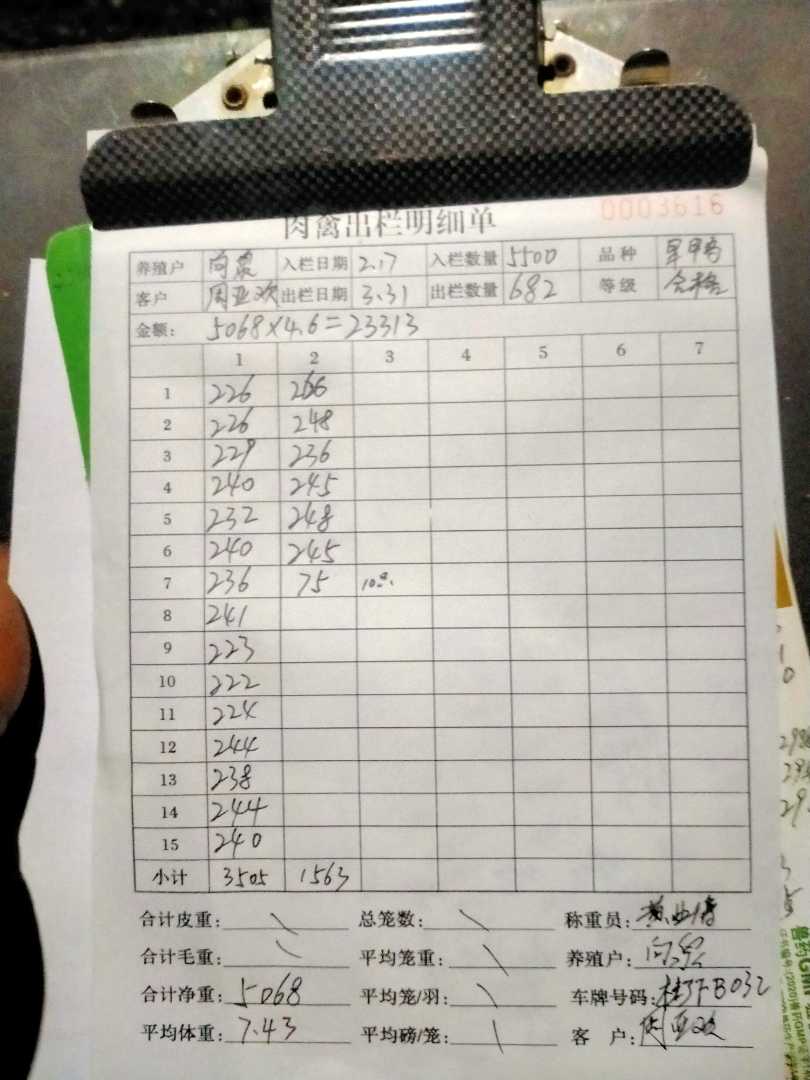 肉禽出栏明细单 0003616
养殖户 向泉 入栏日期 2.17 入栏数量 5500 品种
客户 周亚欢 出栏日期 3.31 出栏数量 682 等级 合格
金额: 5068×4.6=23313
1 2 3 4 5 6 7
1 226 266
2 226 248
3 229 236
4 240 245
5 232 248
6 240 245
7 236 75 10只
8 241
9 223
10 222
11 224
12 244
13 238
14 244
15 240
小计 3505 1563
合计皮重: \ 总笼数: \ 称重员:
合计毛重: \ 平均笼重: \ 养殖户: 向泉
合计净重: 5068 平均笼/羽: \ 车牌号码:
平均体重: 7.43 平均磅/笼: \ 客 户: 周亚欢